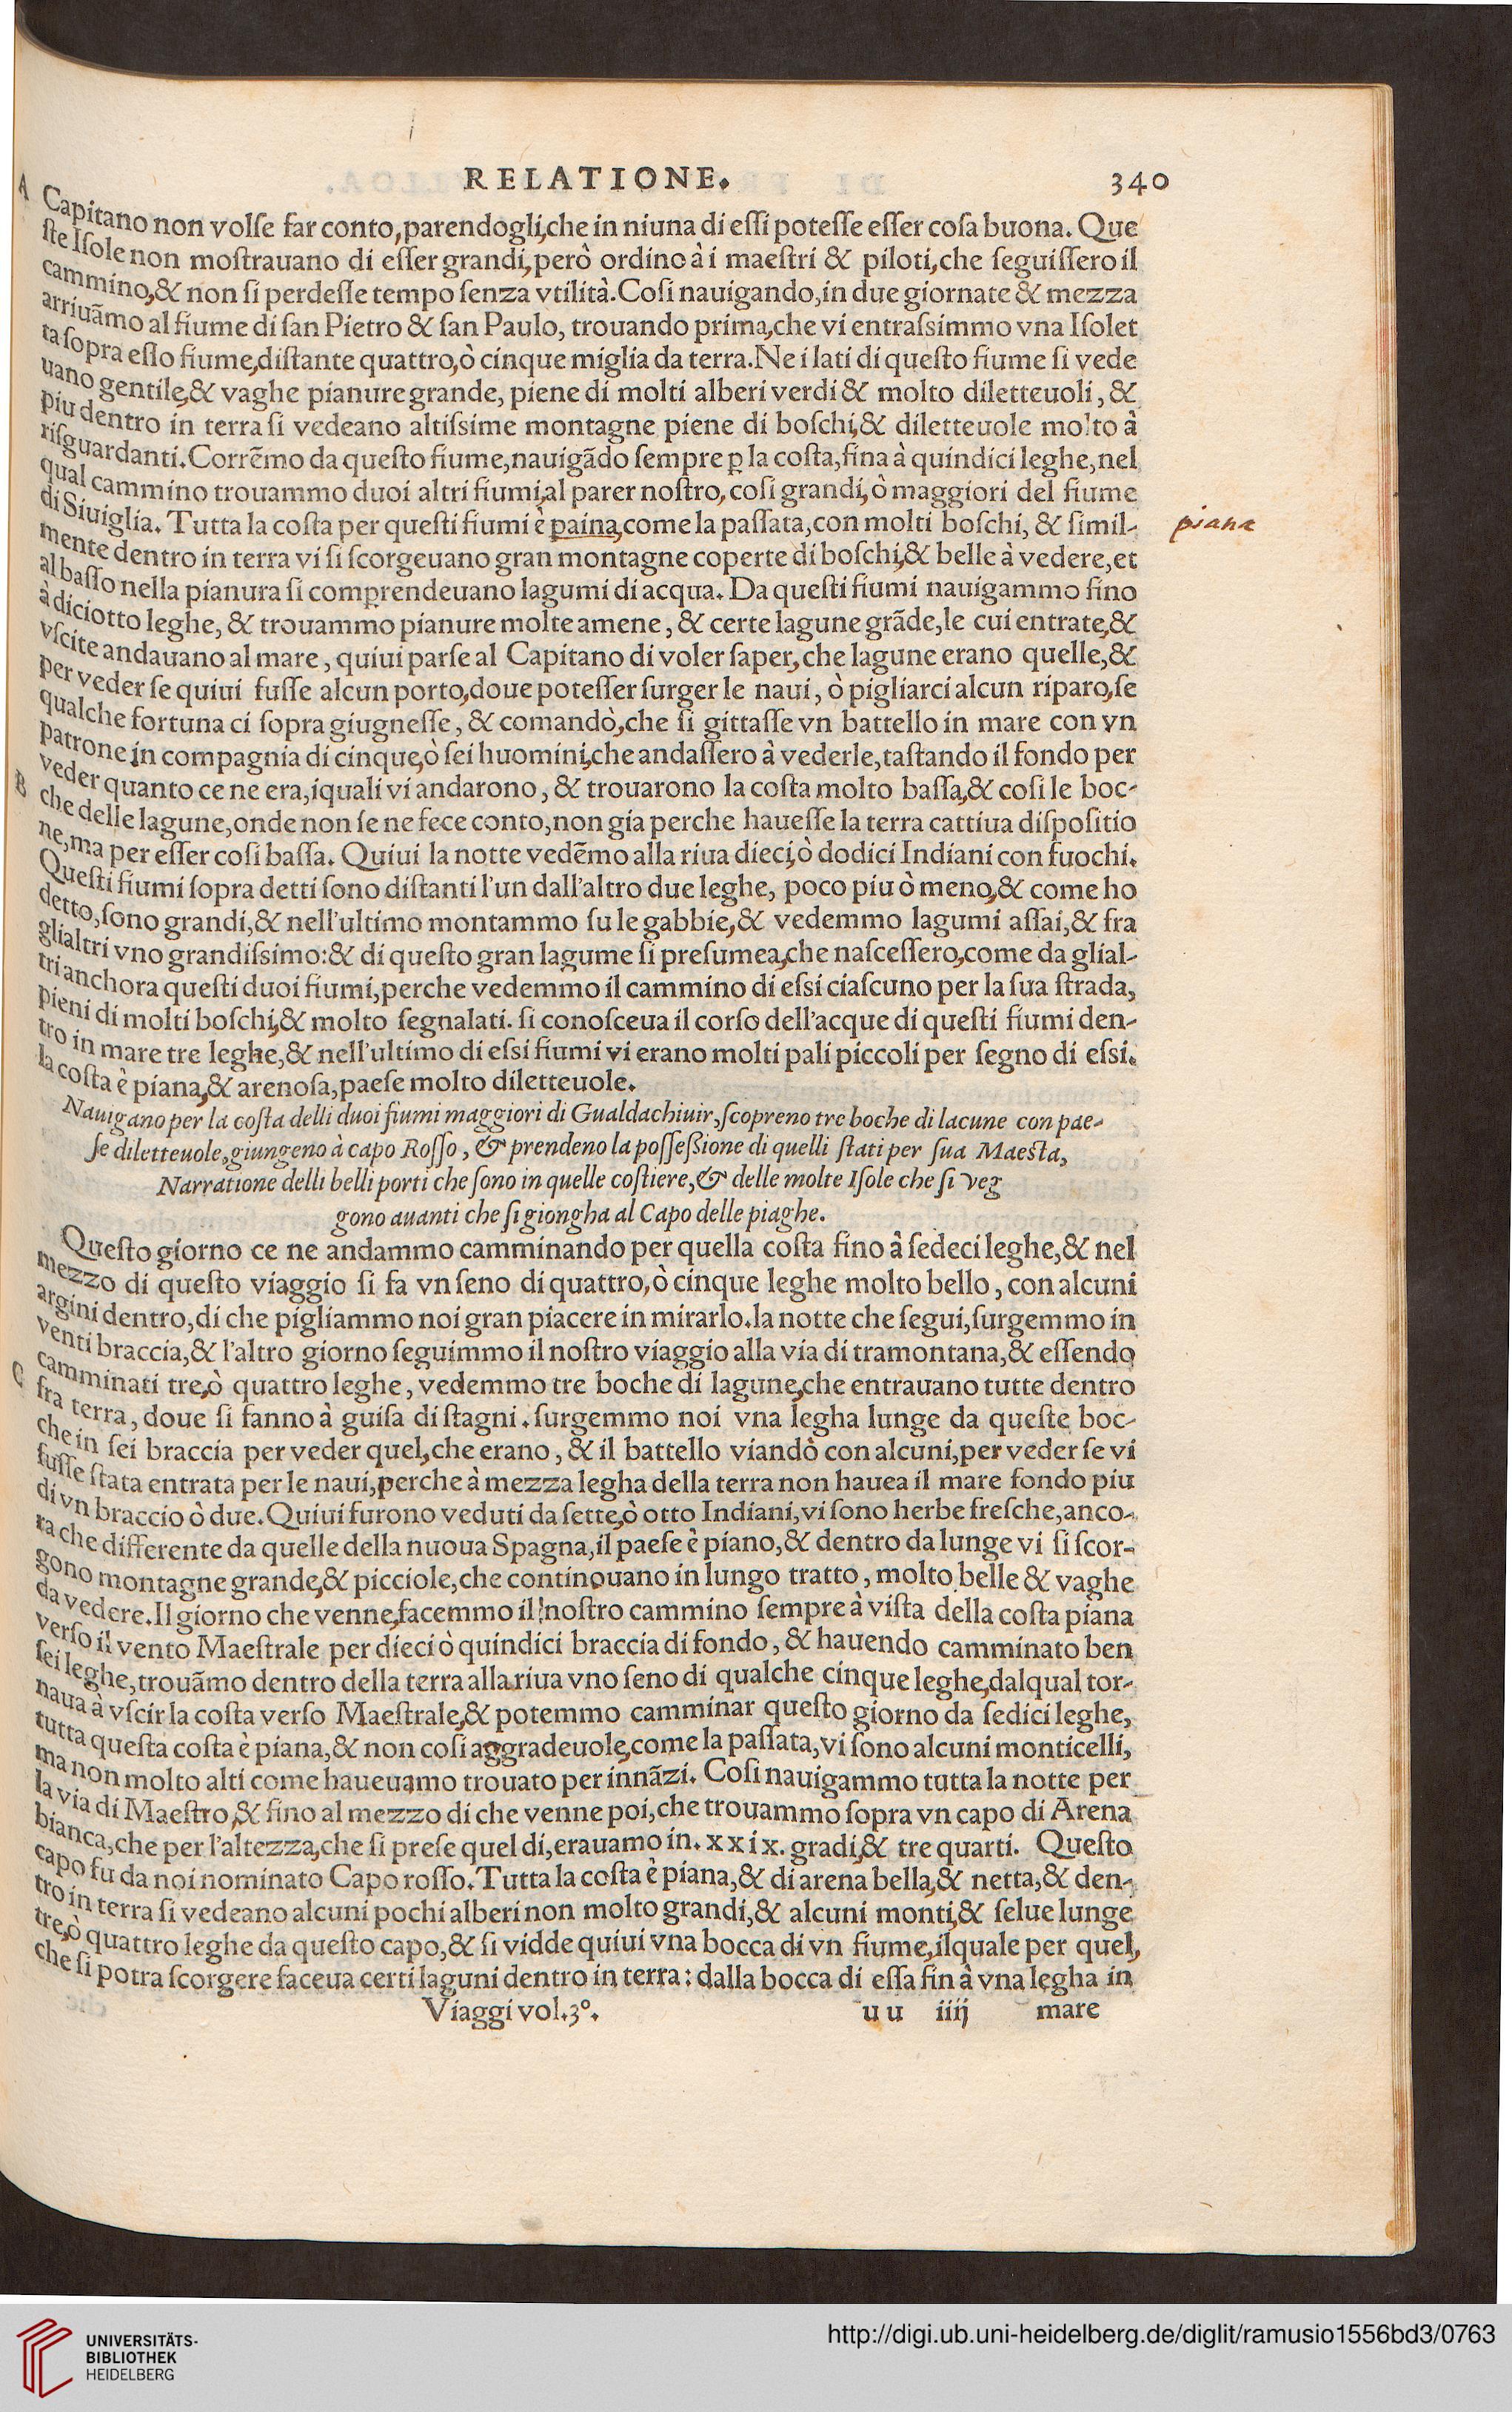 RELATIONE. 340
A Capitano non volſe far conto, parendogli, che in niuna di eſſi poteſſe eſſer coſa buona. Que
ſte Iſole non moſtrauano di eſſer grandi, però ordino à i maeſtri & piloti, che ſeguiſſero il
cammino, & non ſi perdeſſe tempo ſenza vtilità. Coſi nauigando, in due giornate & mezza
arriuãmo al fiume di ſan Pietro & ſan Paulo, trouando prima, che vi entraſsimmo vna Iſolet
ta ſopra eſſo fiume, diſtante quattro, ò cinque miglia da terra. Ne i lati di queſto fiume ſi vede
uano gentile, & vaghe pianure grande, piene di molti alberi verdi & molto diletteuoli, &
piu dentro in terra ſi vedeano altiſsime montagne piene di boſchi, & diletteuole molto à
riſguardanti. Corrẽmo da queſto fiume, nauigãdo ſempre ꝑ la coſta, fina à quindici leghe, nel
qual cammino trouammo duoi altri fiumi, al parer noſtro, coſi grandi, ò maggiori del fiume
di Siuiglia. Tutta la coſta per queſti fiumi è paina, come la paſſata, con molti boſchi, & ſimil-
piana
mente dentro in terra vi ſi ſcorgeuano gran montagne coperte di boſchi, & belle à vedere, et
al baſſo nella pianura ſi comprendeuano lagumi di acqua. Da queſti fiumi nauigammo fino
à diciotto leghe, & trouammo pianure molte amene, & certe lagune grãde, le cui entrate, &
vſcite andauano al mare, quiui parſe al Capitano di voler ſaper, che lagune erano quelle, &
per veder ſe quiui fuſſe alcun porto, doue poteſſer ſurger le naui, ò pigliarci alcun riparo, ſe
qualche fortuna ci ſopra giugneſſe, & comandò, che ſi gittaſſe vn battello in mare con vn
patrone in compagnia di cinque, ò ſei huomini, che andaſſero à vederle, taſtando il fondo per
B veder quanto ce ne era, iquali vi andarono, & trouarono la coſta molto baſſa, & coſi le boc-
che delle lagune, onde non ſe ne fece conto, non gia perche haueſſe la terra cattiua diſpoſitio
ne, ma per eſſer coſi baſſa. Quiui la notte vedẽmo alla riua dieci, ò dodici Indiani con fuochi.
Queſti fiumi ſopra detti ſono diſtanti l'un dall'altro due leghe, poco piu ò meno, & come ho
detto, ſono grandi, & nell'ultimo montammo ſu le gabbie, & vedemmo lagumi aſſai, & fra
glialtri vno grandiſsimo: & di queſto gran lagume ſi preſumea, che naſceſſero, come da glial-
tri anchora queſti duoi fiumi, perche vedemmo il cammino di eſsi ciaſcuno per la ſua ſtrada,
pieni di molti boſchi, & molto ſegnalati. ſi conoſceua il corſo dell'acque di queſti fiumi den-
tro in mare tre leghe, & nell'ultimo di eſsi fiumi vi erano molti pali piccoli per ſegno di eſsi.
la coſta è piana, & arenoſa, paeſe molto diletteuole.
Nauigano per la coſta delli duoi fiumi maggiori di Gualdachiuir, ſcopreno tre boche di lacune con pae-
ſe diletteuole, giungeno à capo Roſſo, & prendeno la poſſeßione di quelli ſtati per ſua Maeſta,
Narratione delli belli porti che ſono in quelle coſtiere, & delle molte Iſole che ſi veg
gono auanti che ſi giongha al Capo delle piaghe.
Queſto giorno ce ne andammo camminando per quella coſta fino â ſedeci leghe, & nel
mezzo di queſto viaggio ſi fa vn ſeno di quattro, ò cinque leghe molto bello, con alcuni
argini dentro, di che pigliammo noi gran piacere in mirarlo. la notte che ſegui, ſurgemmo in
venti braccia, & l'altro giorno ſeguimmo il noſtro viaggio alla via di tramontana, & eſſendo
C camminati tre, ò quattro leghe, vedemmo tre boche di lagune, che entrauano tutte dentro
fra terra, doue ſi fanno à guiſa di ſtagni. ſurgemmo noi vna legha lunge da queſte boc-
che in ſei braccia per veder quel, che erano, & il battello viandò con alcuni, per veder ſe vi
fuſſe ſtata entrata per le naui, perche à mezza legha della terra non hauea il mare fondo piu
di vn braccio ò due. Quiui furono veduti da ſette, ò otto Indiani, vi ſono herbe freſche, anco-
ra che differente da quelle della nuoua Spagna, il paeſe è piano, & dentro da lunge vi ſi ſcor-
gono montagne grande, & picciole, che continouano in lungo tratto, molto belle & vaghe
da vedere. Il giorno che venne, facemmo il noſtro cammino ſempre à viſta della coſta piana
verſo il vento Maeſtrale per dieci ò quindici braccia di fondo, & hauendo camminato ben
ſei leghe, trouãmo dentro della terra alla riua vno ſeno di qualche cinque leghe, dalqual tor-
naua à vſcir la coſta verſo Maeſtrale, & potemmo camminar queſto giorno da ſedici leghe,
tutta queſta coſta è piana, & non coſi aggradeuole, come la paſſata, vi ſono alcuni monticelli,
ma non molto alti come haueuamo trouato per innãzi. Coſi nauigammo tutta la notte per
la via di Maeſtro, & fino al mezzo di che venne poi, che trouammo ſopra vn capo di Arena
bianca, che per l'altezza, che ſi preſe quel di, erauamo in. xxix. gradi, & tre quarti. Queſto
capo fu da noi nominato Capo roſſo. Tutta la coſta è piana, & di arena bella, & netta, & den-
tro in terra ſi vedeano alcuni pochi alberi non molto grandi, & alcuni monti, & ſelue lunge
tre, ò quattro leghe da queſto capo, & ſi vidde quiui vna bocca di vn fiume, ilquale per quel,
che ſi potra ſcorgere faceua certi laguni dentro in terra: dalla bocca di eſſa fin â vna legha in
Viaggi vol. 3°. uu iiij mare
UNIVERSITÄTS-
BIBLIOTHEK
HEIDELBERG
http://digi.ub.uni-heidelberg.de/diglit/ramusio1556bd3/0763